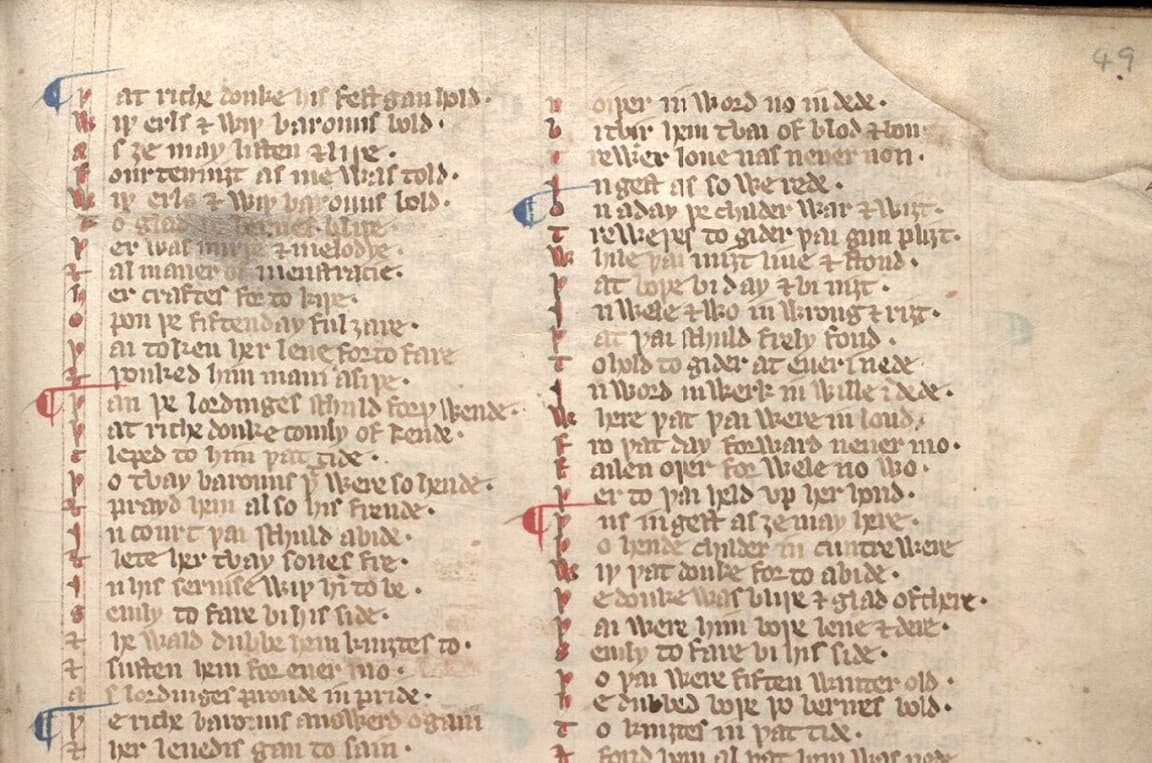 ¶ Þ at riche douke his fest gan hold·
W iþ erls & wiþ barouns bold·
A s ȝe may listen & liþe·
F ourtenniȝt as me was told·
W iþ erls & wiþ barouns bold·
T o glad þo bernes bliþe·
Þ er was mirþe & melodye·
& al maner of menstracie·
H er craftes for to kiþe·
O pon þe fiftenday ful ȝare·
Þ ai token her leue forto fare
& þonked him mani asiþe·
¶ Þ an þe lordinges schuld forþ wende·
Þ at riche douke comly of kende·
C leped to him þat tide·
Þ o tvay barouns þͭ were so hende·
& prayd hem also his frende·
I n court þai schuld abide·
& lete her tvay sones fre·
I n his seruise wiþ hī to be·
S emly to fare bi his side·
& he wald dubbe hem kniȝtes to·
& susten hem for euer mo·
A s lordinges proude in pride·
¶ Þ e riche barouns answerd ogain
& her leuedis gan to sain·
N oþer in word no in dede·
B itvix hem tvai of blod & bon·
T rewer loue nas neuer non·
I n gest as so we rede·
¶ O n aday þe childer war & wiȝt·
T reweþes to gider þai gun pliȝt·
W hile þai miȝt liue & stond·
Þ at boþe bi day & bi niȝt·
I n wele & wo in wrong & riȝt·
Þ at þai schuld frely fond·
T o hold to gider at eueri nede
I n word in werk in wille ī dede·
W here þat þai were in lond·
F ro þat day forward neuer mo·
F ailen oþer for wele no wo·
Þ er to þai held vp her hond·
¶ Þ us in gest as ȝe may here·
Þ o hende childer in cuntre were
W iþ þat douke for to abide·
Þ e douke was bliþe & glad of chere·
Þ ai were him boþe leue & dere·
S emly to fare bi his side·
Þ o þai were fiften winter old·
H e dubbed boþe þo bernes bold·
T o kniȝtes in þat tide·
& fond hem al þat hem was nede
49